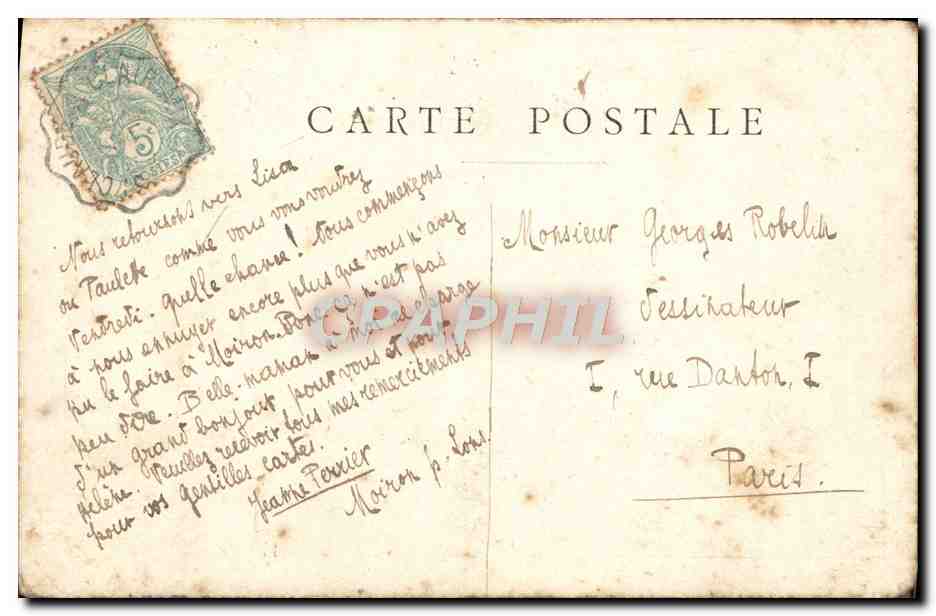 CARTE POSTALE
5c
POSTES
Nous retournons vers Lisa
ou Paulette comme vous voudrez
Vendredi. Quelle chance! Nous commençons
à nous ennuyer encore plus que vous n'avez
pu le faire à Moiron. Donc ce n'est pas
peu dire. Belle-maman a me charge
d'un grand bonjour pour vous et pour
Hélène. Veuillez recevoir tous mes remerciements
pour vos gentilles cartes.
Jeanne Perrier
Moiron p. Lons.
Monsieur Georges Robelin
Dessinateur
I, rue Danton, I
Paris.
CPAPHIL